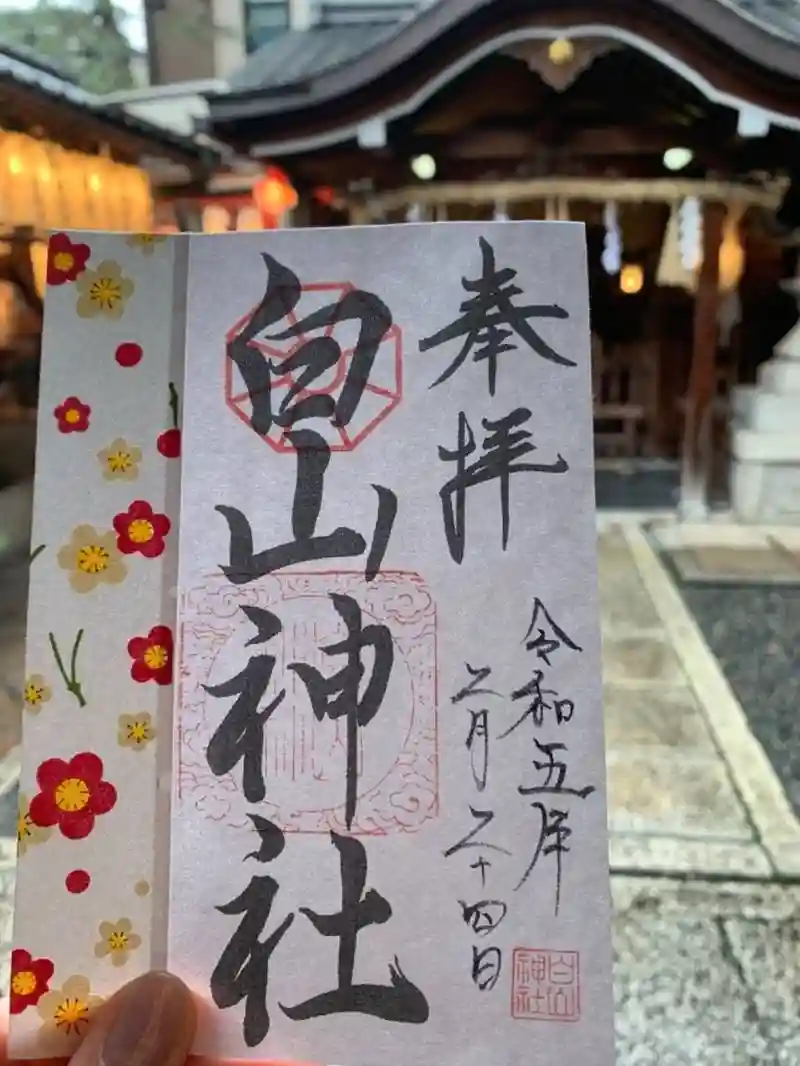 奉拝
白山神社
令和五年
二月二十四日
白山神社